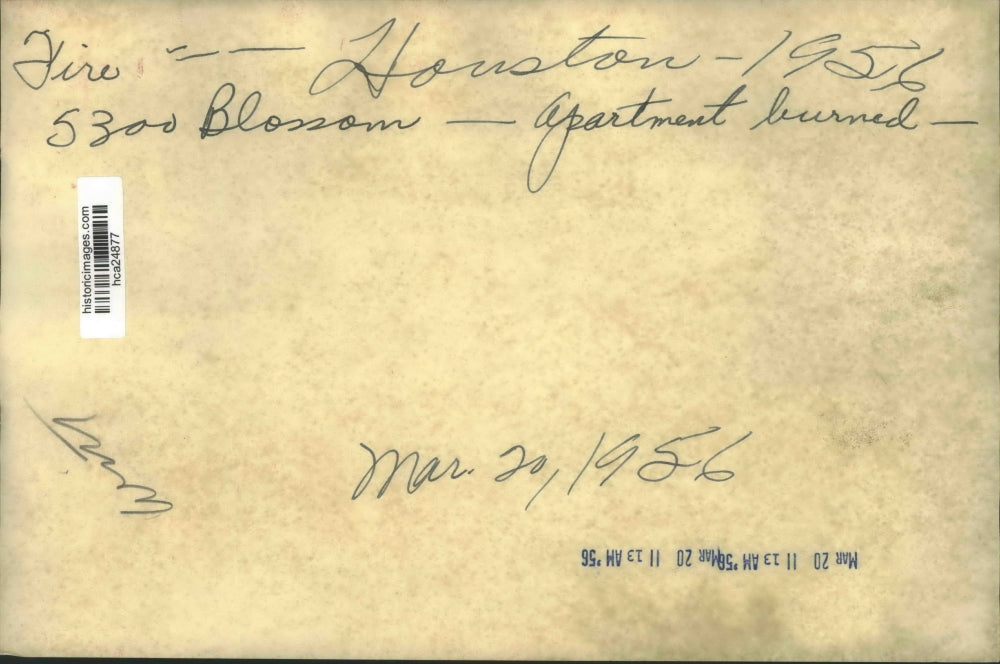 Fire -- — Houston - 1956
5300 Blossom — Apartment burned —
historicimages.com
hca24877
Mar. 20, 1956
MAR 20 11 13 AM '56 MAR 20 11 13 AM '56